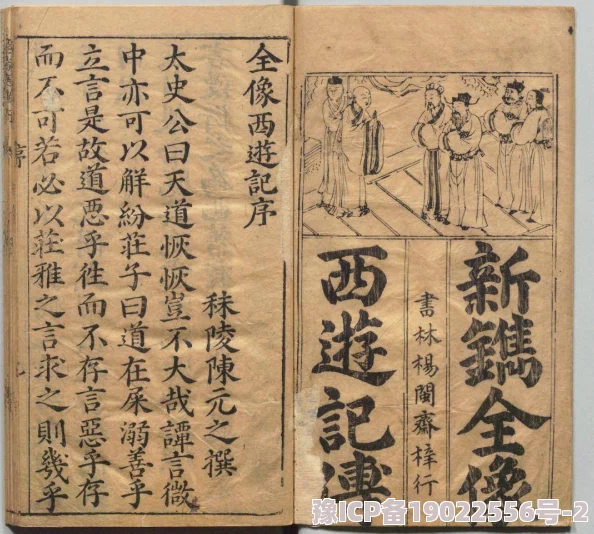 新鐫全像
書林楊閩齋梓行
西遊記傳
全像西遊記序
秣陵陳元之撰
太史公曰天道恢恢豈不大哉譚言微
中亦可以觧紛莊子曰道在屎溺善乎
立言是故道惡乎徃而不存言惡乎存
而不可若必以莊雅之言求之則幾乎
序
豫ICP备19022556号-2